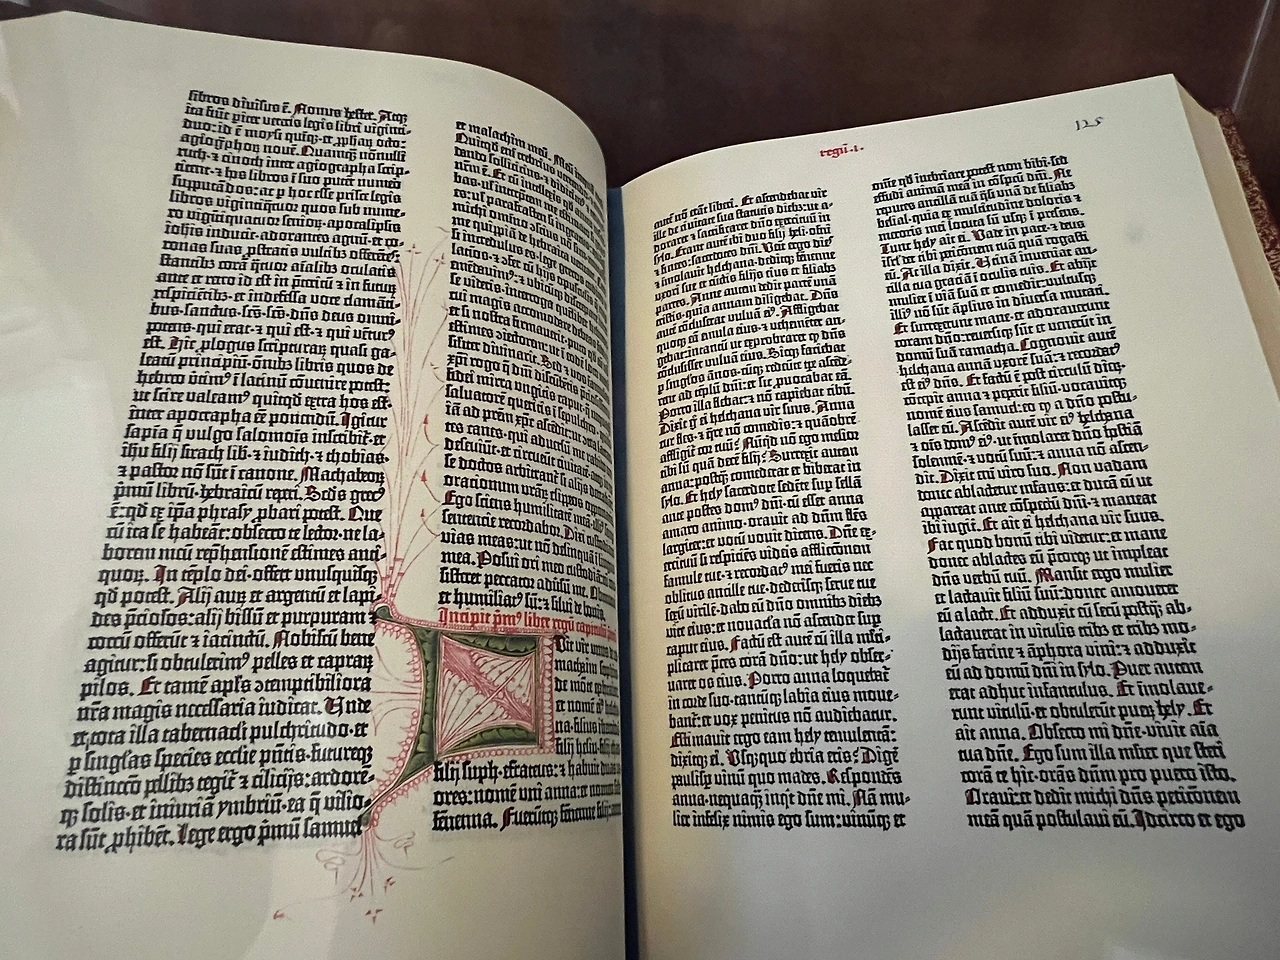 libros divisus ē. Nonus hester. Atq;
ita fiūt p̄iter veteris legis libri viginti-
duo: id ē moysi quīq;· et ꝓphaꝝ octo:
agiogphoꝝ novē. Quamq̄ nōnulli
ruth· ⁊ cinoth inter agiographa scrip-
titent· ⁊ hos libros ī suo putēt numero
supputādos: ac p hoc esse priscę legis
libros vigintiquatuor quos sub nume-
ro vigītiquatuor senioꝝ· apocalipsis
iohīs inducit· adorantes agnū· et co-
ronas suas ꝓstratis vultibꝫ offerētes:
stantibꝫ corā q̄tuor aīalibꝫ oculatis
ante et retro id est in p̄teritū ⁊ in futuꝝ
respiciētibꝫ· et indefessa voce clamāti-
bus· sanctus· scūs· scūs· dn̄s deus omni-
potens· qui erat· ⁊ qui est· ⁊ qui vētur9
est. Hic ꝓlogus scripturaꝝ· quasi ga-
leatū principiū· ōnibꝫ libris quos de
hebreo v̄tim9 ī latinū cōvenire potest:
ut scire valeam9 quitqd extra hos est·
inter apocrapha eē ponendū. Igitur
sapīa q̄ vulgo salomōis inscribit᷑· et
ihu filij sirach lib· ⁊ iudith· ⁊ thobias·
⁊ pastor nō sūt ī canone. Machabeoꝝ
p̄mū librū· hebraicū reperi. Scd̄s grec9
ē: qd ex ip̄a phrasy ꝓbari potest. Que
cū ita se habeāt: obsecro te lector· ne la-
borem meū rephensionē estimes anti-
quoꝝ. In tēplo dei· offert unusquisq;
qd potest. Alij auꝝ et argentū et lapi-
des p̄ciosos: alij bissū et purpuram ⁊
coccū offerūt ⁊ iacinctū. Nobiscū bene
agitur: si obtulerim9 pelles et capraꝝ
pilos. Et tamē apl̄s ↄtemptibiliora
nr̄a magis necessaria iudicat. Unde
et tota illa tabernacli pulchritudo· et
p singl̄as species ecclie p̄ntis· futureq;
distinctio pellibꝫ tegit᷑ ⁊ cilicijs: ardorē-
q; solis· et iniuriā ymbriū· ea q̄ vilio-
ra sūt ꝓhibēt. Lege ergo p̄mū samuel
et malachim meū. Meū
Quicqd enī crebrius
tando sollicitius· ⁊ didicim9
nēm ē. Et cū intellexeris qd
bas· ul̄ interp̄tem me estimato
es: ul̄ parafrasten
michi omnino ↄscius nō sum
me quippiā de hebraica
si incredulus es· lege grecos
latinos· ⁊ ↄfer cū hijs opusculis
emēdavim9: ⁊ ubicūq;
se videris· interroga
cui magis accomodare debeas
et si nostra firmaverit· puto
estimes ↄiectorem: ut ī eodē
siliter divinarit. Sed ⁊ vos
xp̄i rogo
fidei mirra ungitis caput·
salvatorē queritis ī sepulchro·
iā ad prēm xp̄c ascēdit: ut
tes canes· qui adversū me
deseviūt· et circueūt civitatē·
se doctos arbitrant᷑ si alijs
orationum vr̄aꝝ clipeos opponatis
Ego sciens humilitatē meā·
sententie recordabor. Dixi custodiā
vias meas: ut nō delinquā ī
mea. Posui ori meo custodiā·
sisteret peccator adūsum me.
et humiliat9 sū: ⁊ silui de bonis.
Incipit p̄m9 liber regū· capitulū
Fuit vir unus de
machaim sophim
de mōte ephraim
et nomē ei9 helchana
filij suph· effrateus: ⁊ habuit duas
ores: nomē uni anna: et nomen
fenenna. Fueruntq; fenenne filij
regū·I·
125
aut̄ nō erāt liberi. Et ascendebat vir
ille de civitate sua statutis diebꝫ: ut a-
doraret ⁊ sacrificaret dn̄o exercituū in
sylo. Erant aut̄ ibi duo filij heli· ofni
⁊ finees: sacerdotes dn̄i. Venit ergo dies
⁊ immolavit helchana· deditq; fenenne
uxori sue et cūctis filijs eius et filiabꝫ
partes. Anne autem dedit partē unā
tristis· quia annam diligebat. Dn̄s
aut̄ cōcluserat vulvā ei9. Affligebat
quoq; eā emula eius· ⁊ vehemēter an-
gebat: intantū ut exprobraret q dn̄s
cōclusisset vulvā eius. Sicq; faciebat
p singulos ānos· cūq; redeūte tp̄e ascēde-
rent ad tēplū dn̄i: et sic ꝓvocabat eā.
Porro illa flebat: ⁊ nō capiebat cibū.
Dixit g̊ ei helchana vir suus. Anna
cur fles· ⁊ q̄re nō comedis: ⁊ quāobrē
affligit᷑ cor tuū? Nūqd nō ego melior
tibi sū quā decē filij? Surrexit autem
anna: postq̄ comederat et biberat in
sylo. Et hely sacerdote sedēte sup sellā
ante postes dom9 dn̄i· cū esset anna
amaro animo· oravit ad dn̄m flēs
largiter: et votū vovit dicens. Dn̄e ex-
ercituū si respiciēs videris afflictionē
famule tue· ⁊ recordat9 mei fueris nec
oblitus ancille tue· dederisq; serve tue
sexū virilē· dabo eū dn̄o omnibꝫ diebꝫ
vite eius: et novacla nō ascendet sup
caput eius. Factū est aut̄ cū illa mlti-
plicaret p̄ces corā dn̄o: ut hely obser-
varet os eius. Porro anna loquebat᷑
in corde suo· tantūq; labia eius move-
bant᷑: et vox penitus nō audiebatur.
Estimavit ergo eam hely temulentā:
dixitq; ei. Usq;quo ebria eris? Digere
paulisꝑ vinū quo mades. Respondēs
anna· nequaq̄ inq̇t dn̄e mi. Nā mu-
lier infelix nimis ego sum: vinūq; et
omne qd inebriare potest non bibi· sed
effudi animā meā in cōspectu dn̄i. Ne
reputes ancillā tuā q̄si unā de filiabꝫ
belial· quia ex multitudine doloris ⁊
meroris mei locuta sū usq; ī presens.
Tunc hely ait ei. Vade in pace· ⁊ deus
isrl̄ det tibi petitionem tuā quā rogasti
eū. At illa dixit. Utinā inveniat an-
cilla tua gratiā ī oculis tuis. Et abijt
mulier ī viā suā et comedit: vultusq;
illi9 nō sūt āplius in diversa mutati.
Et surrexerunt mane· et adoraverunt
coram dn̄o: reversiq; sūt et venerūt in
domū suā ramatha. Cognovit aut̄
helchana annā uxorē suā: ⁊ recordat9
est ei9 dn̄s. Et factū ē post circulū dieꝝ·
cōcepit anna ⁊ peperit filiū· vocavitq;
nomē eius samuel: eo q a dn̄o postu-
lasset eū. Ascēdit aut̄ vir ei9 helchana
⁊ ōis dom9 ei9· ut imolaret dn̄o hostiā
solennē· ⁊ votū suū: ⁊ anna nō ascen-
dit. Dixit eī viro suo. Non vadam
donec ablactetur infans: et ducā eū ut
appareat ante cōspectū dn̄i· ⁊ maneat
ibi iugit᷑. Et ait ei helchana vir suus.
Fac quod bonū tibi videtur: et mane
donec ablactes eū· p̄corq; ut impleat
dn̄s verbū suū. Mansit ergo mulier
et lactavit filiū suū: donec amoveret
eū a lacte. Et adduxit eū secū postq̄ ab-
lactaverat in vitulis tribꝫ et tribꝫ mo-
dijs farine ⁊ āphora vini: ⁊ adduxit
eū ad domū dn̄i in sylo. Puer autem
erat adhuc infantulus. Et īmolave-
runt vitulū· et obtulerūt pueꝝ hely. Et
ait anna. Obsecro mi dn̄e· vivit aīa
tua dn̄e. Ego sum illa mlier que steti
corā te hic· orās dn̄m pro puero isto.
Oravi: et dedit michi dn̄s petitionem
meā quā postulavi eū. Idcirco et ego